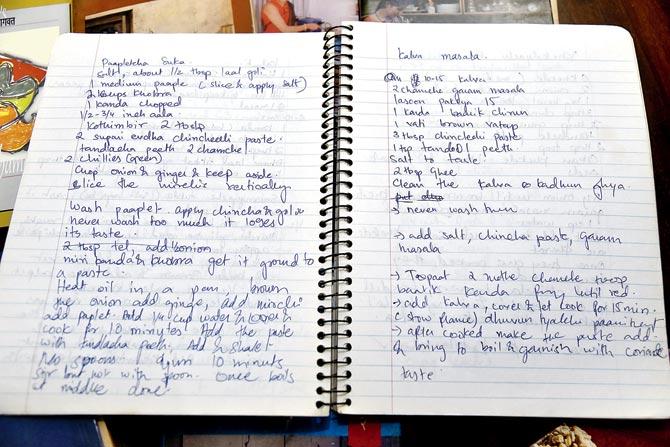 Paapletcha Suka
Salt, about 1/2 tbsp laal goli
1 medium paaple (slice & apply salt)
2 cups khobra
1 kanda chopped
1/2 - 3/4 inch aala
Kothimbir 2 tbsp
2 supari evdha chinchechi paste
tandlacha peeth 2 chamche
2 chillies (green)
Chop onion & ginger & keep aside.
slice the mirchi vertically
Wash paaplet. apply chincha &
never wash too much it loses
its taste.
2 tbsp tel, add onion
miri kanda & khobra get it ground to
a paste.
Heat oil in a pan, brown
the onion add ginge, add mirchi
add paplet. Add 1/4 cup water & cover &
cook for 10 minutes Add the paste
with tandlacha peeth. Add &
no spoons 10 minuts
stir but not with spoon. Once boils
it done
Kalva masala.
10-15 kalva
2 chamche garam masala
lasoon paklya 15
1 Kanda barik chirun
1 vati brown vatap
3 tbsp chinchechi paste
1 tsp peeth
Salt to taste
2 tbsp ghee
Clean the kalva kadhun ghya.
put
→ never wash them
→ add salt, chincha paste, garam
masala
→ Topaat 2 mothe chamche
barik kanda fry until red.
→ add kalva, cover & let cook for 15 min.
(slow flame) dhuvun paani
→ after cooked make the paste add
& bring to boil & garnish with
taste